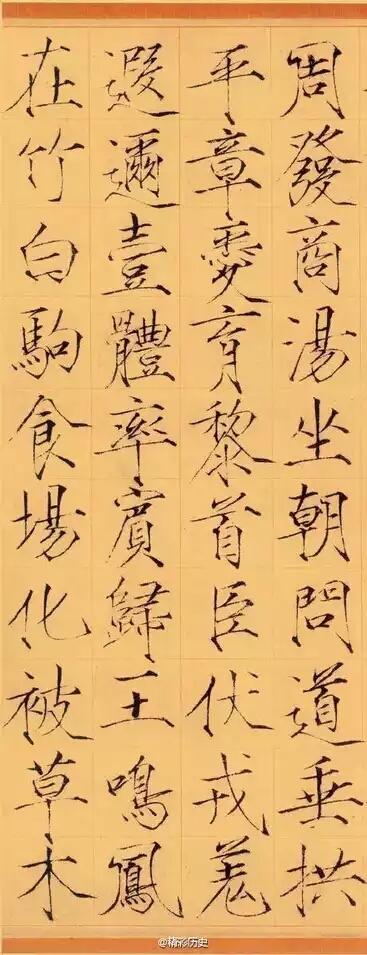 周發商湯坐朝問道垂拱
平章愛育黎首臣伏戎羌
遐邇壹體率賓歸王鳴鳳
在竹白駒食場化被草木
@精彩历史